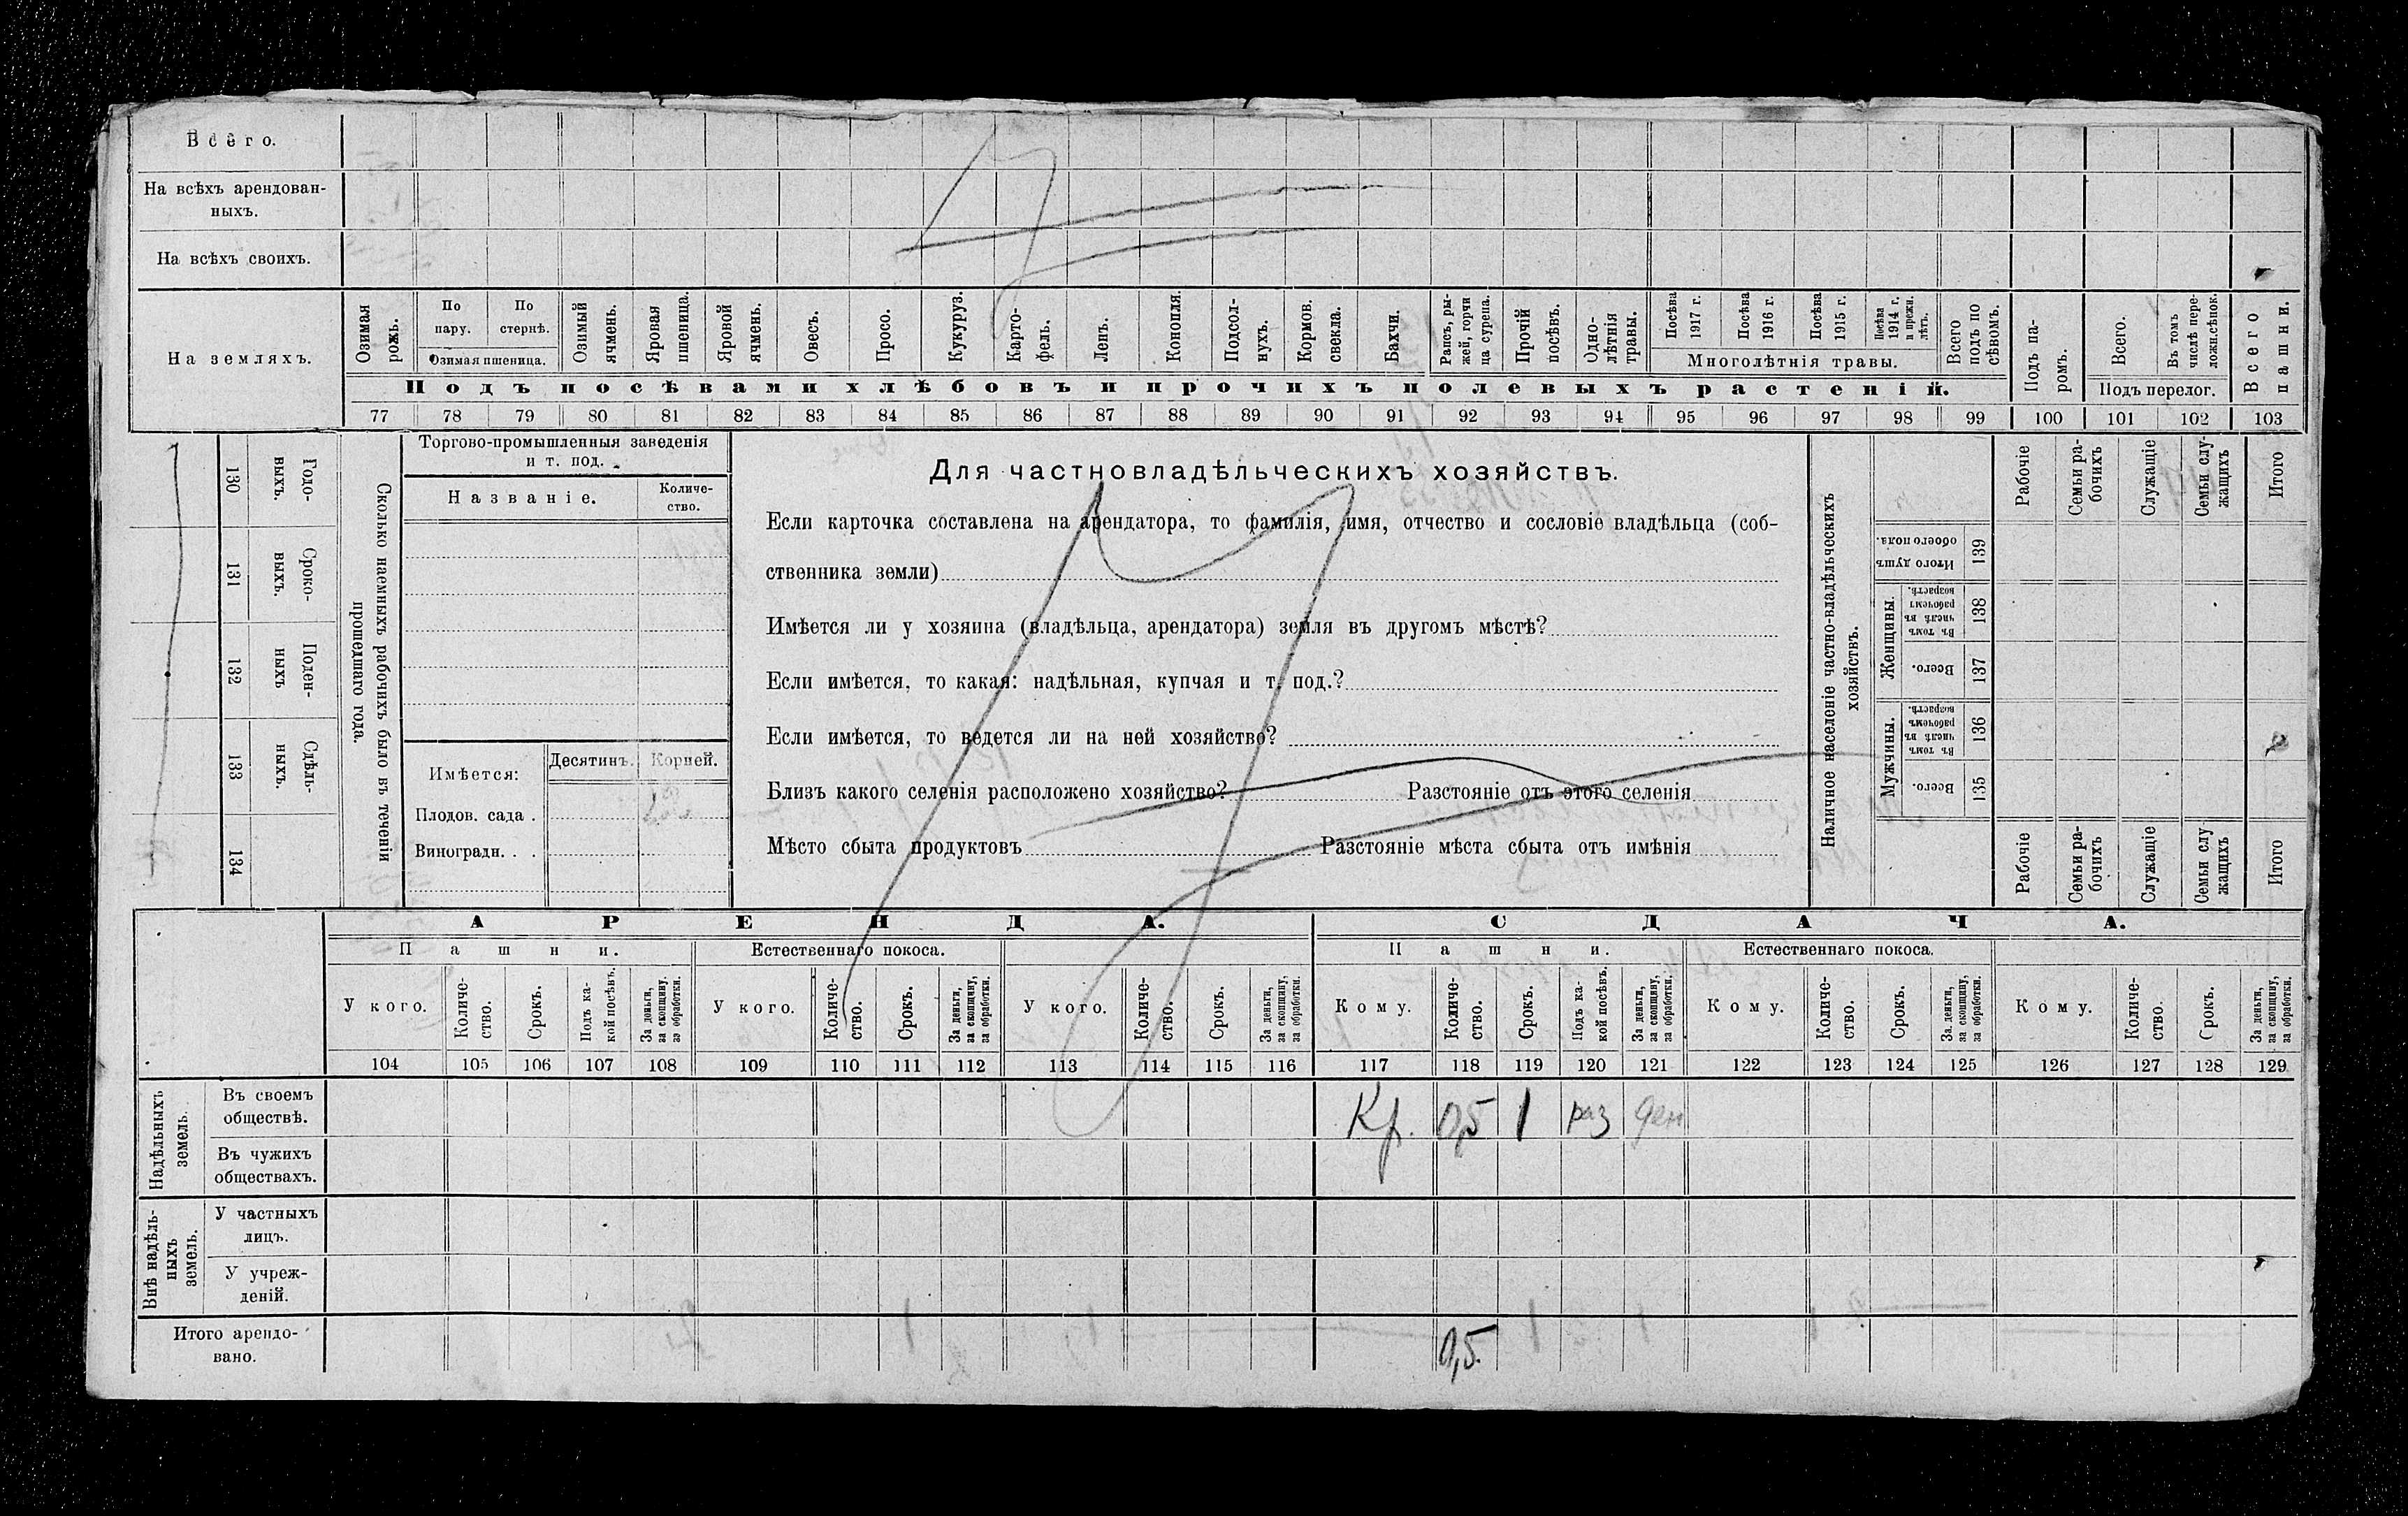 Всего.
На всѣхъ арендован-
ныхъ.
На всѣхъ своихъ.
На земляхъ.
Озимая рожь.
По пару.
По стернѣ.
Озимая пшеница.
Озимый ячмень.
Яровая пшеница.
Яровой ячмень.
Овесъ.
Просо.
Кукуруз.
Карто-
фель.
Ленъ.
Конопля.
Подсол-
нухъ.
Кормов. свекла.
Бахчи.
Рапсъ, ры-
жей, горчи
ца сурепа.
Прочій посѣвъ.
Одно-
лѣтнія
травы.
Посѣва 1917 г.
Посѣва 1916 г.
Посѣва 1915 г.
Посѣва 1914 г. и прежн. лѣтъ.
Многолѣтнія травы.
Всего подъ по
сѣвомъ.
Подъ па-
ромъ.
Всего.
Въ томъ
числѣ пере-
ложн.сѣнок.
Подъ перелог.
Всего пашни.
Подъ посѣвами хлѣбовъ и прочихъ полевыхъ растеній.
77 78 79 80 81 82 83 84 85 86 87 88 89 90 91 92 93 94 95 96 97 98 99 100 101 102 103
130 131 132 133 134
Годо-
выхъ.
Сроко-
выхъ.
Поден-
ныхъ
Сдѣль-
ныхъ.
Сколько наемныхъ рабочихъ было въ теченіи
прошедшаго года.
Торгово-промышленныя заведенія
и т. под.
Названіе.
Количе-
ство.
Имѣется:
Десятинъ.
Корней.
Плодов. сада .
Виноградн. . .
Для частновладѣльческихъ хозяйствъ.
Если карточка составлена на арендатора, то фамилія, имя, отчество и сословіе владѣльца (соб-
ственника земли)
Имѣется ли у хозяина (владѣльца, арендатора) земля въ другомъ мѣстѣ?
Если имѣется, то какая: надѣльная, купчая и т. под.?
Если имѣется, то ведется ли на ней хозяйство?
Близъ какого селенія расположено хозяйство? Разстояніе отъ этого селенія
Мѣсто сбыта продуктовъ Разстояніе мѣста сбыта отъ имѣнія
Наличное населеніе частно-владѣльческихъ
хозяйствъ.
Рабочіе
Семьи ра-
бочихъ
Служащіе
Семьи слу-
жащихъ
Итого
Итого душъ
обоего пола.
139
Женщины.
Въ томъ числѣ въ рабочемъ возрастѣ.
138
Всего.
137
Мужчины.
Въ томъ числѣ въ рабочемъ возрастѣ.
136
Всего.
135
Рабочіе
Семьи ра-
бочихъ
Служащіе
Семьи слу
жащихъ
Итого
АРЕНДА.
СДАЧА.
Пашни.
Естественнаго покоса.
Пашни.
Естественнаго покоса.
У кого.
Количе-
ство.
Срокъ.
Подъ ка-
кой посѣвъ.
За деньги,
за скопщину,
за обработки.
У кого.
Количе-
ство.
Срокъ.
За деньги,
за скопщину,
за обработки.
У кого.
Количе-
ство.
Срокъ.
За деньги,
за скопщину,
за обработки.
Кому.
Количе-
ство.
Срокъ.
Подъ ка-
кой посѣвъ.
За деньги,
за скопщину,
за обработки.
Кому.
Количе-
ство.
Срокъ.
За деньги,
за скопщину,
за обработки.
Кому.
Количе-
ство.
Срокъ.
За деньги,
за скопщину,
за обработки.
104 105 106 107 108 109 110 111 112 113 114 115 116 117 118 119 120 121 122 123 124 125 126 127 128 129
Надѣльныхъ
земель.
Въ своемъ
обществѣ.
Кр. 0,5 1 раз ден
Въ чужихъ
обществахъ.
Внѣ надѣль-
ныхъ
земель.
У частныхъ
лицъ.
У учреж-
деній.
Итого арендо-
вано.
0,5.